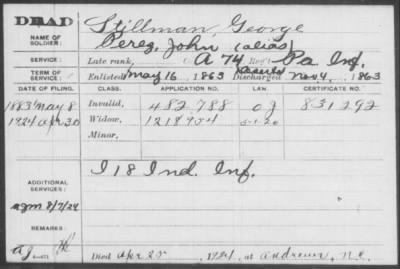 DEAD
NAME OF SOLDIER: Stillman, George
Perez, John (alias)
SERVICE: Late rank, Co. A 74 Reg't Pa. Inf.
TERM OF SERVICE: Enlisted May 16, 1863 Deserted Discharged Nov. 4, 1863
DATE OF FILING. CLASS. APPLICATION NO. LAW. CERTIFICATE NO.
1883 May 8 Invalid, 482788 831292
1924 Apr 30 Widow, 5-1-20
Minor,
ADDITIONAL SERVICES: I 18 Ind. Inf.
8/7/24
REMARKS:
Died Apr 25, 1924, at Andrews, N.C.